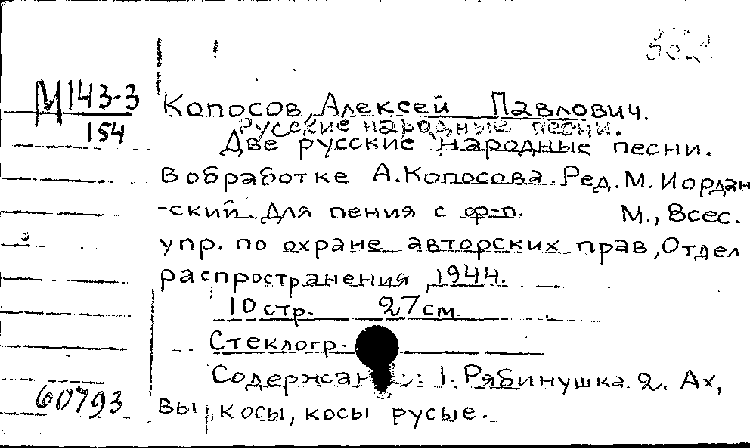 М 143-3
154
Копосов, Алексей Павлович.
Русские народные песни.
Две русские народные песни.
В обработке А. Копосова. Ред. М. Иордан
-ский. Для пения с ф-п. М., Всес.
упр. по охране авторских прав, Отдел
распространения, 1944.
10 стр. 27 см
Стеклогр.
Содержан : 1. Рябинушка. 2. Ах,
вы, косы, косы русые.
60793